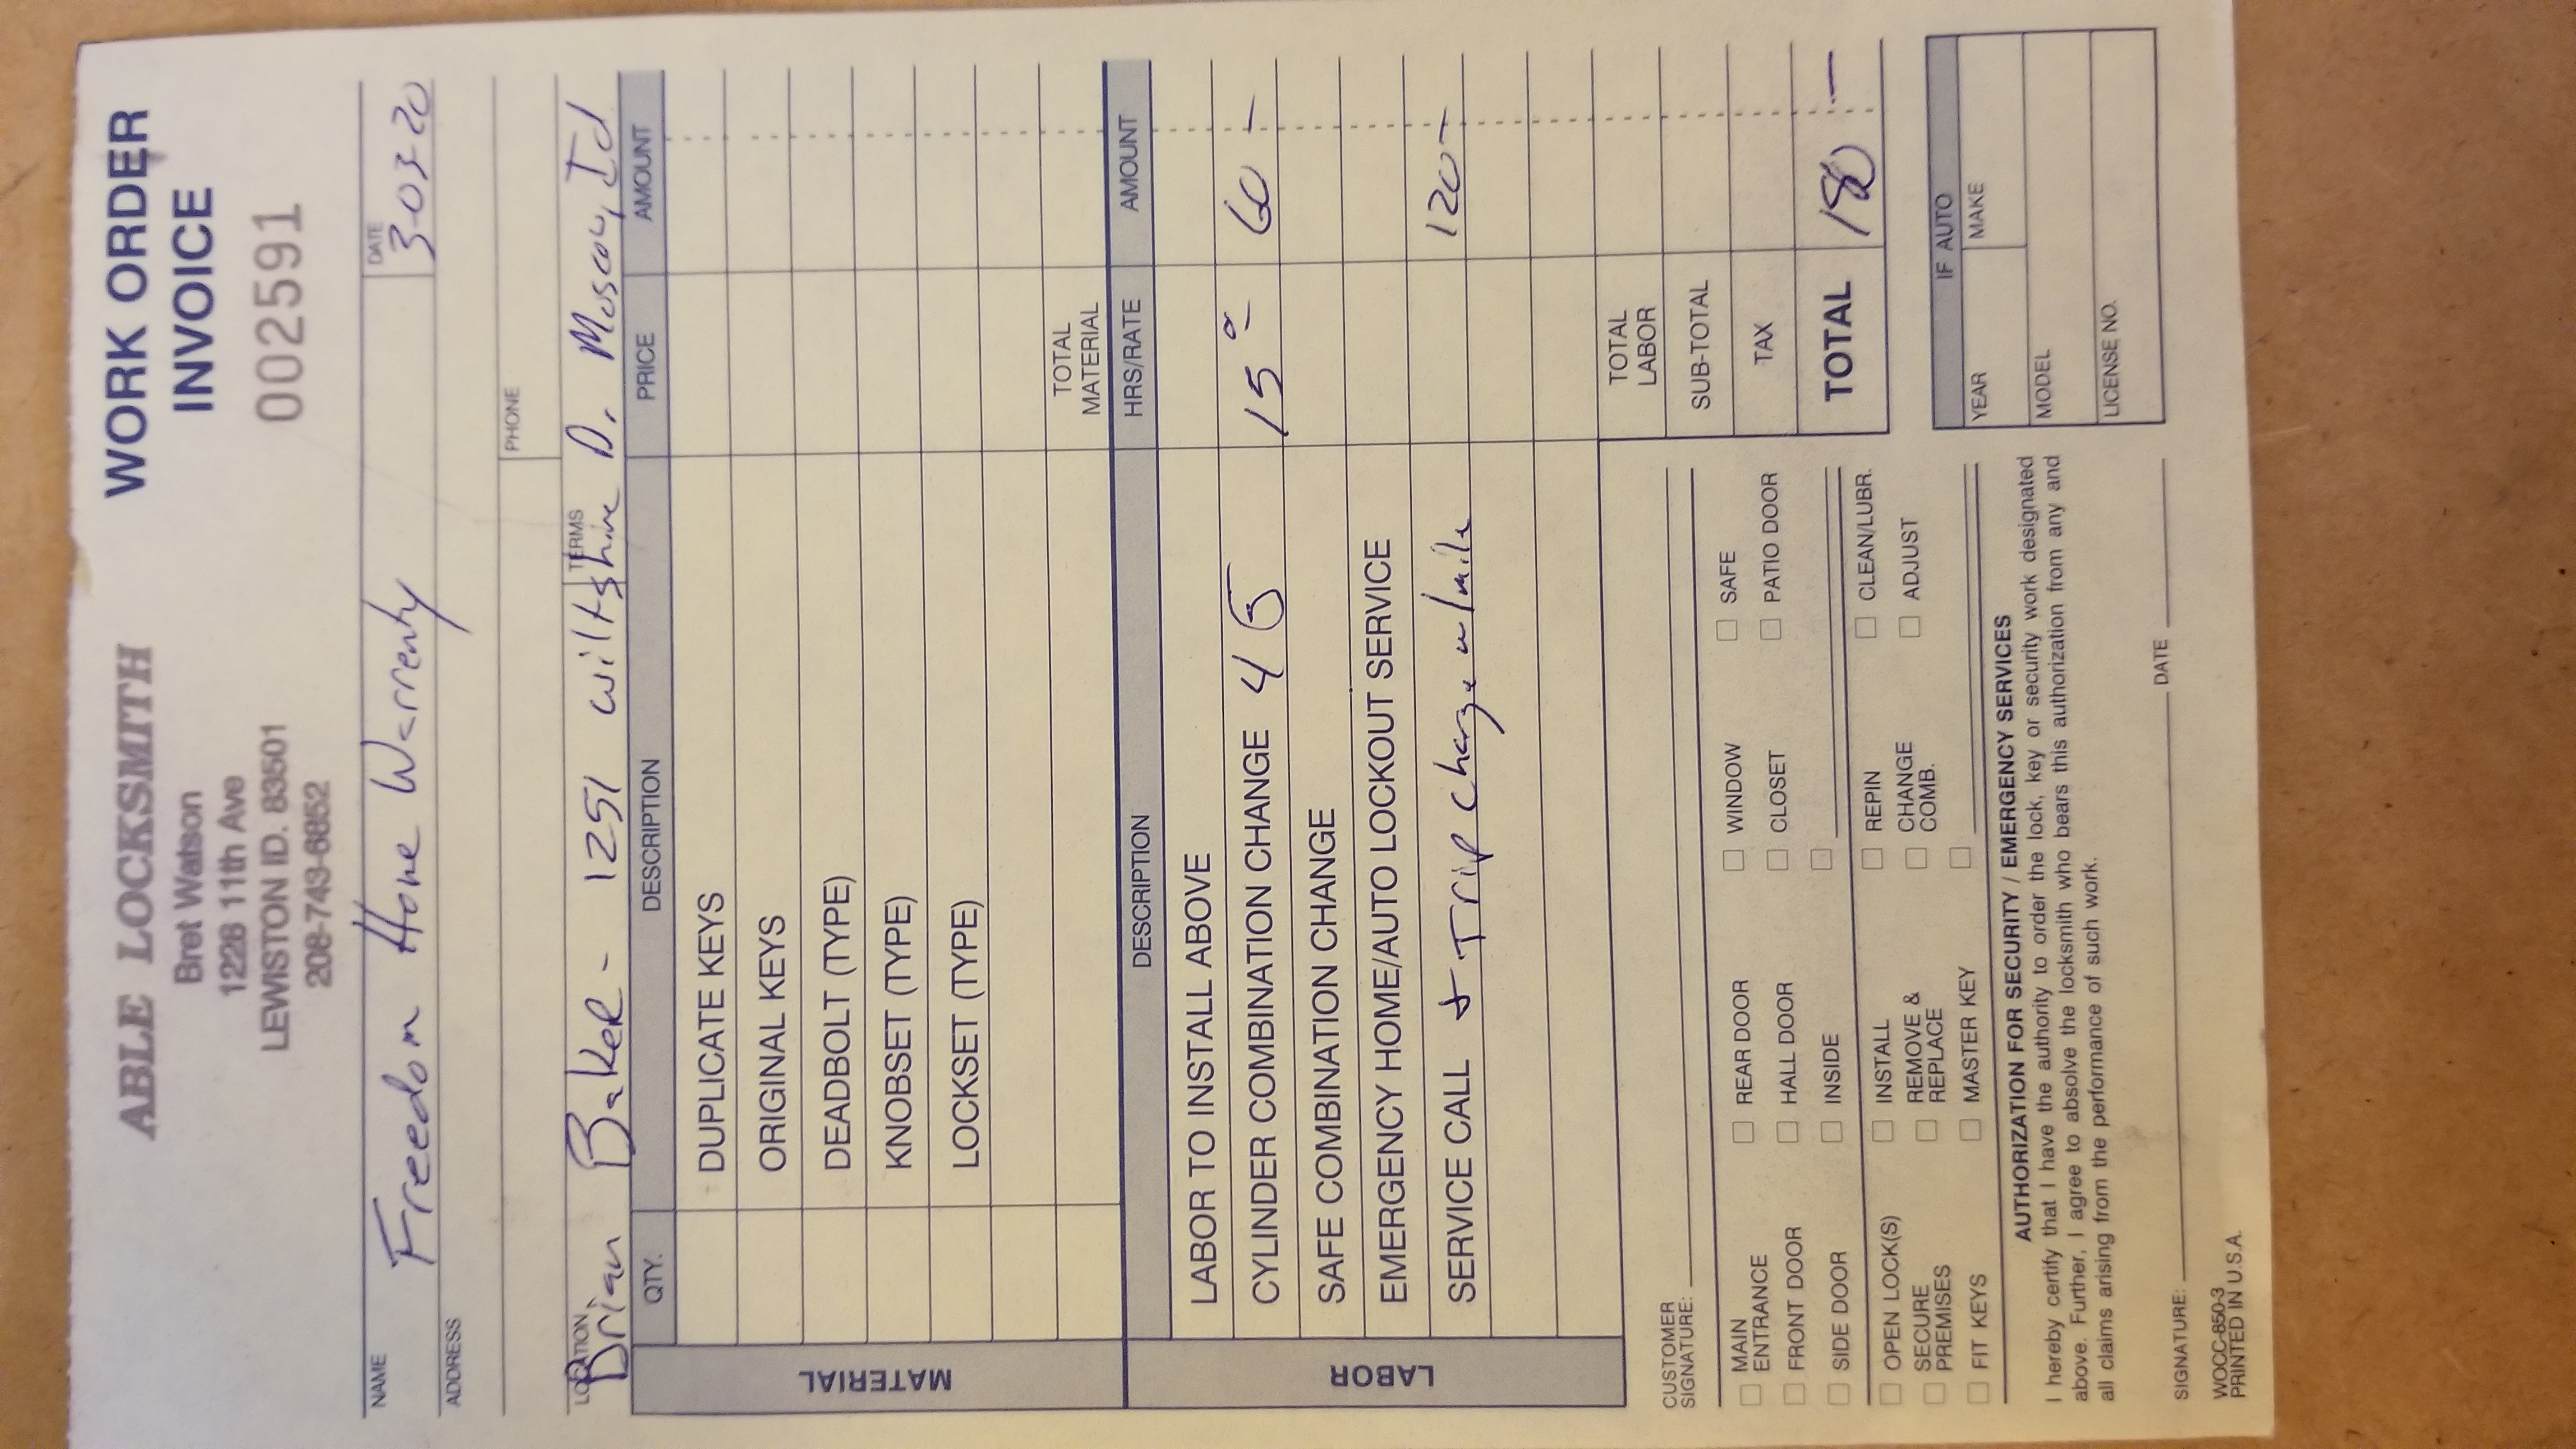 ABLE LOCKSMITH
Bret Watson
1226 11th Ave
LEWISTON ID. 83501
208-743-6852
WORK ORDER
INVOICE
002591
NAME Freedom Home Warrenty
DATE 3-03-20
ADDRESS
PHONE
LOCATION TERMS
Brian Baker - 1251 Wiltshire D. Moscow, Id
MATERIAL
QTY. DESCRIPTION PRICE AMOUNT
DUPLICATE KEYS
ORIGINAL KEYS
DEADBOLT (TYPE)
KNOBSET (TYPE)
LOCKSET (TYPE)
TOTAL
MATERIAL
LABOR
DESCRIPTION HRS/RATE AMOUNT
LABOR TO INSTALL ABOVE
CYLINDER COMBINATION CHANGE 4 15 60 -
SAFE COMBINATION CHANGE
EMERGENCY HOME/AUTO LOCKOUT SERVICE
SERVICE CALL + Trip charge w/mile 120-
TOTAL
LABOR
SUB-TOTAL
TAX
TOTAL 180 -
CUSTOMER
SIGNATURE:
MAIN
ENTRANCE
REAR DOOR
WINDOW
SAFE
FRONT DOOR
HALL DOOR
CLOSET
PATIO DOOR
SIDE DOOR
INSIDE
OPEN LOCK(S)
INSTALL
REPIN
CLEAN/LUBR.
SECURE
PREMISES
REMOVE &
REPLACE
CHANGE
COMB.
ADJUST
FIT KEYS
MASTER KEY
IF AUTO
YEAR MAKE
MODEL
LICENSE NO.
AUTHORIZATION FOR SECURITY / EMERGENCY SERVICES
I hereby certify that I have the authority to order the lock, key or security work designated
above. Further, I agree to absolve the locksmith who bears this authorization from any and
all claims arising from the performance of such work.
SIGNATURE: DATE
WOCC-850-3
PRINTED IN U.S.A.